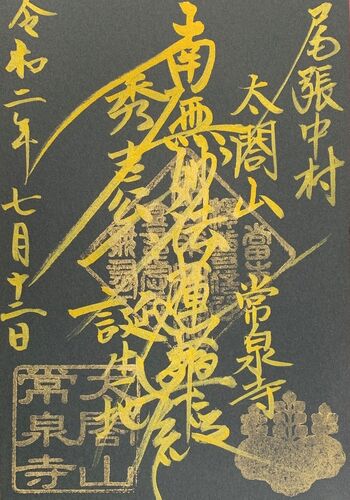 尾張中村
太閤山 常泉寺
南無妙法蓮華経
秀吉公 誕生地
令和二年 七月十二日
太閤山
常泉寺